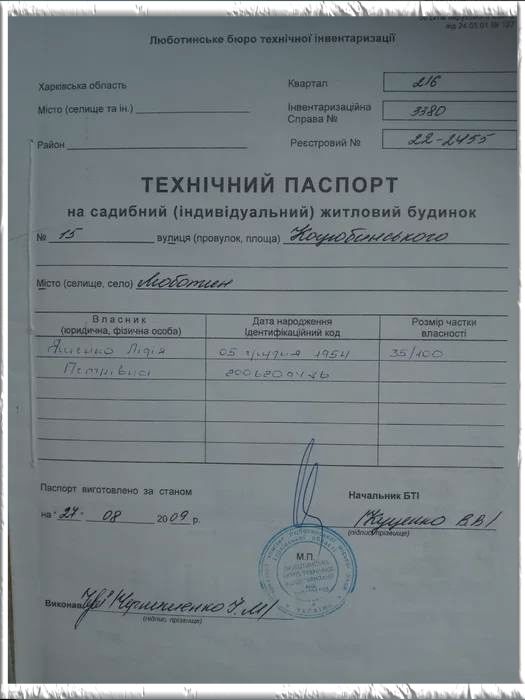 від 24.05.01 № 127
Люботинське бюро технічної інвентаризації
Харківська область
Квартал 216
Місто (селище та ін.)
Інвентаризаційна Справа № 3380
Район
Реєстровий № 22-2455
ТЕХНІЧНИЙ ПАСПОРТ
на садибний (індивідуальний) житловий будинок
№ 15 вулиця (провулок, площа) Коцюбинського
Місто (селище, село) Люботин
Власник (юридична, фізична особа)
Дата народження ідентифікаційний код
Розмір частки власності
Лідія 05 грудня 1954 35/100
Петрівна
Паспорт виготовлено за станом
Начальник БТІ
на "27" 08 2009 р.
/Куценко В.В/
(підпис, прізвище)
М.П.
Виконав
(підпис, прізвище)